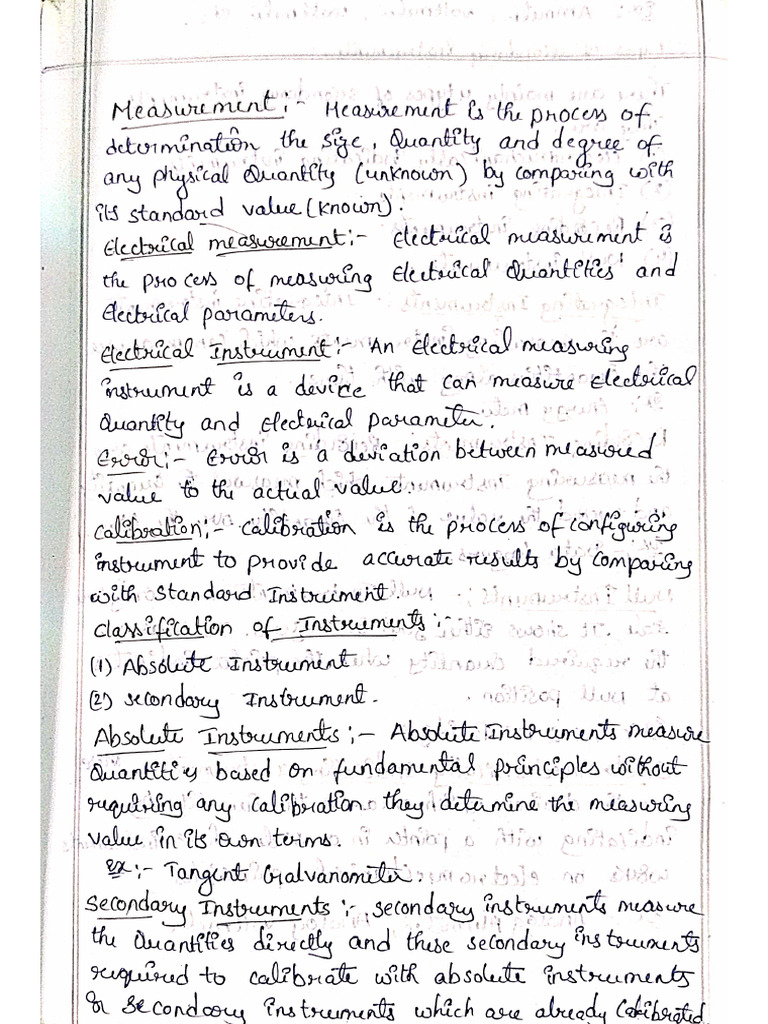 Measurement:- Measurement is the process of
determination the size, Quantity and degree of
any physical Quantity (unknown) by comparing with
its standard value (known).
Electrical measurement:- Electrical measurement is
the process of measuring Electrical Quantities and
Electrical parameters.
Electrical Instrument:- An Electrical measuring
instrument is a device that can measure Electrical
Quantity and Electrical parameter.
Error:- Error is a deviation between measured
value to the actual value.
Calibration:- Calibration is the process of configuring
instrument to provide accurate results by comparing
with standard Instrument.
Classification of Instruments:-
(1) Absolute Instrument
(2) Secondary Instrument.
Absolute Instruments:- Absolute Instruments measure
Quantities based on fundamental principles without
requiring any calibration they determine the measuring
value in its own terms.
Ex:- Tangent Galvanometer.
Secondary Instruments:- Secondary instruments measure
the Quantities directly and these secondary instruments
required to calibrate with absolute instruments
or secondary instruments which are already calibrated